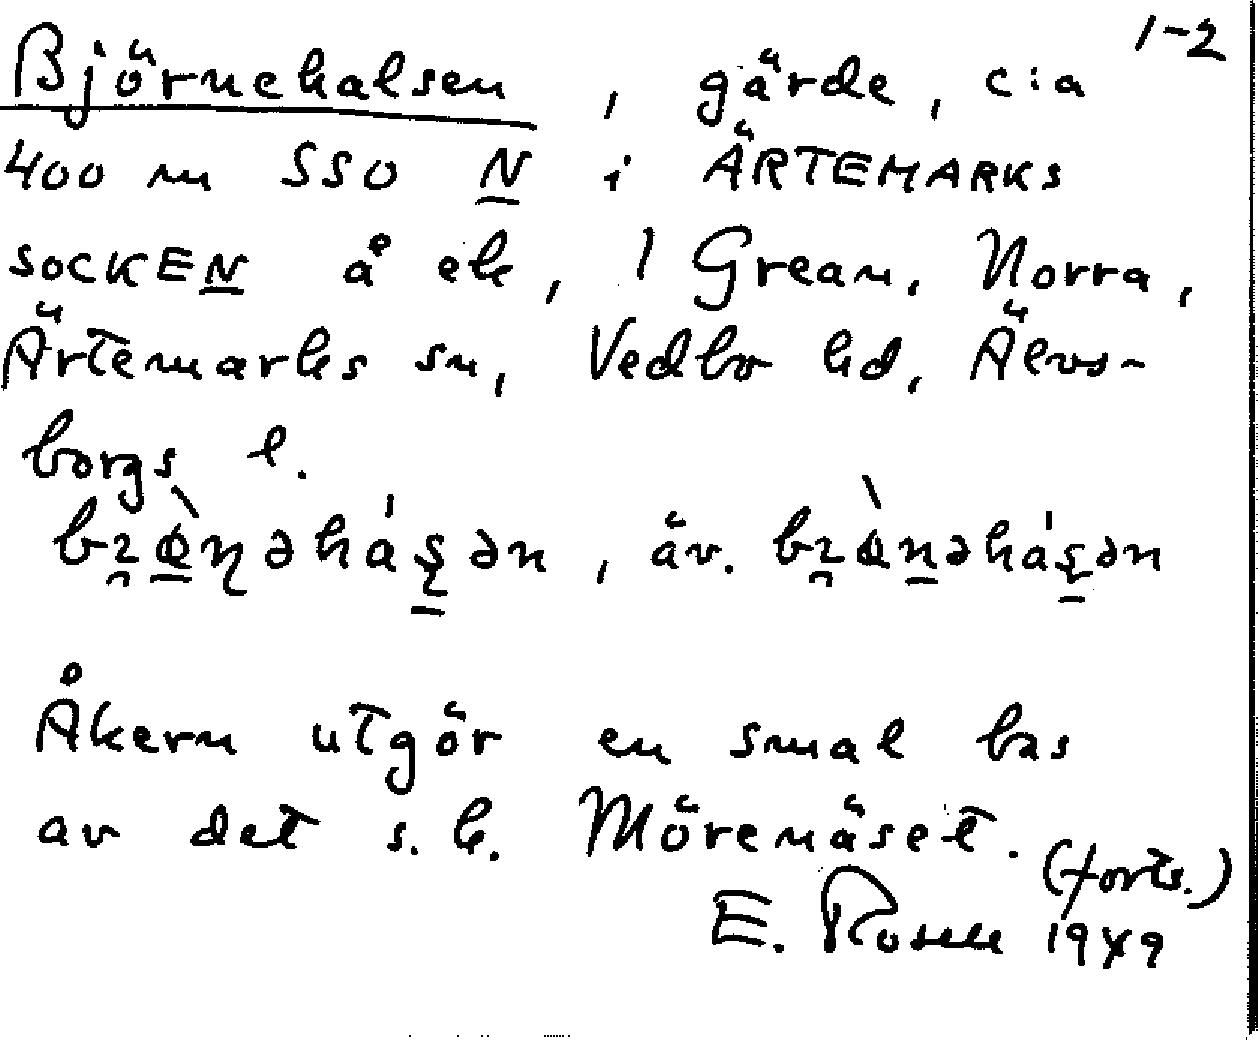 1-2
Björnehalsen, gärde, c:a
400 m SSO N i ÄRTEMARKS
SOCKEN å ek, 1 Grean, Norra,
Ärtemarks sn, Vedbo hd, Älvs-
borgs l.
, äv.
Åkern utgör en smal bas
av det s.k. Mörenäset.
(forts.)
E. Rosell 1949